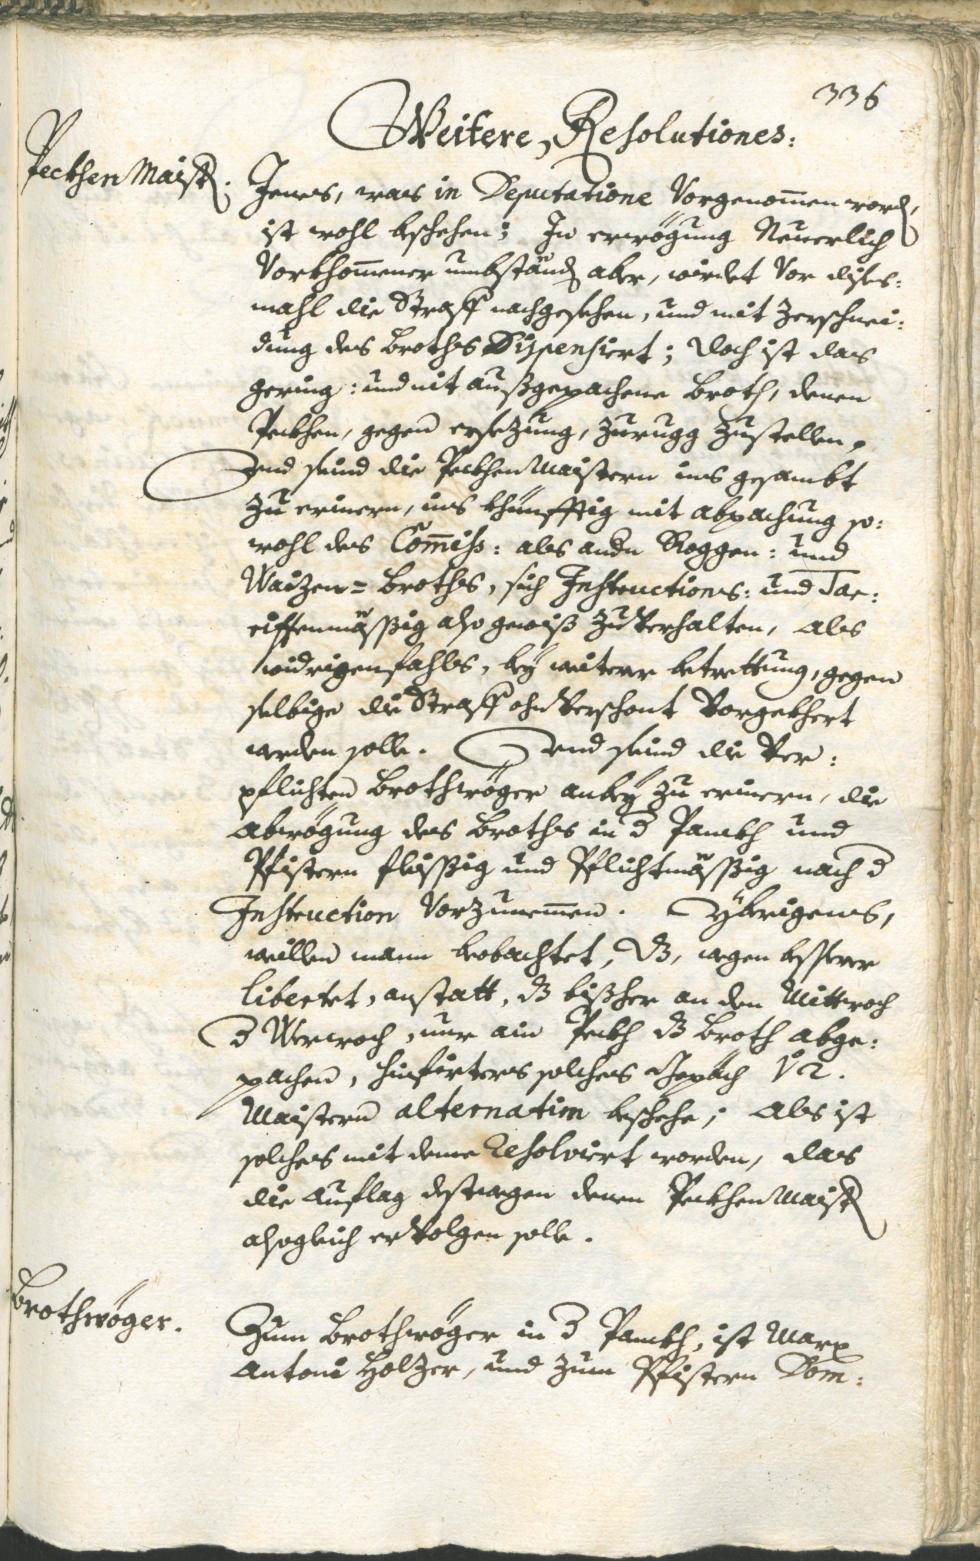 336
Weitere Resolutiones:
Peckhen Maistr.
Jenes, was in Deputatione Vorgenommen word,
ist wohl beschehen; In erwögung Neuerlich
Vorkhommener umbständ aber, wirdet Vor dises=
mahl die Straff nachgesehen, und mit Zerschnei=
dung des Broths Dispensiert; doch ist das
gering: und nit außgepachene Broth, denen
Peckhen, gegen ersezung, Zurugg Zustellen,
Und seind die Peckhen Maistern ins gesambt
Zu erinern, ins khünfftig mit abpachung so=
wohl des Commiß: als andn Roggen: und
Waizen= Broths, sich Instructions: und Tar=
riffenmässig also gewiß Zu Verhalten, als
widrigenfahls, bey weiterer betrettung, gegen
selbige die Straff ohnVerschont Vorgekhert
werden solle. Und seind die Ver=
pflichten Brothwöger anbey Zu erinern, die
Abwögung des Broths in d Panckh und
Pfistern fleissig und Pflichtmässig nach d
Instruction Vorzunemmen. Ybrigens,
weillen mann beobachtet, dz, wegen besserer
libertet, anstatt, dz bißher an den Mittwoch
d Wocwoch, nur ain Peckh dz Broth abge=
pachen, hinfürters solches Gepäch V 2.
Maistern alternatim beschehe; Als ist
solches mit deme Resolviert worden, das
die Auflag destwegen denen Peckhen Maistr
alsogleich erVolgen solle.
Brothwöger.
Zum Brothwöger in d Panckh, ist Marx
Antoni Holzer, und Zum Pfistern Dom=